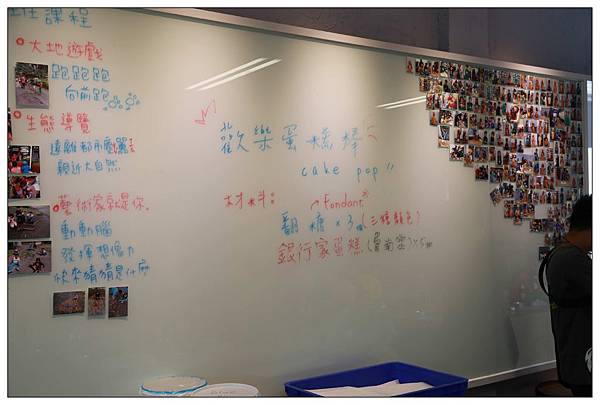 課程
大地遊戲
跑跑跑
向前跑
生態導覽
遠離都市塵囂
親近大自然
藝術家就是你。
動動腦
發揮想像力
快來猜猜是什麼
歡樂蛋糕棒
cake pop
材料：
fondant
翻糖×3 (三種顏色)
銀行家蛋糕(費南雪)×5